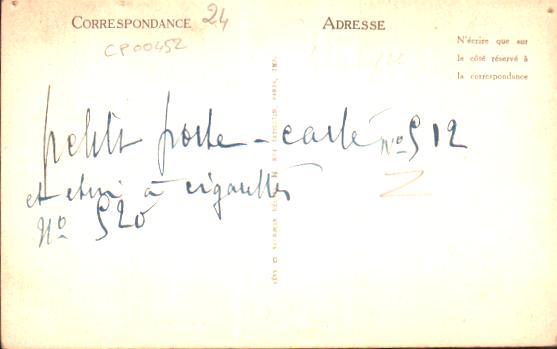 CORRESPONDANCE 24
CP00452
ADRESSE
N'écrire que sur
le côté réservé à
la correspondance
petit porte-carte n° 512
et etui à cigarettes
N° 520